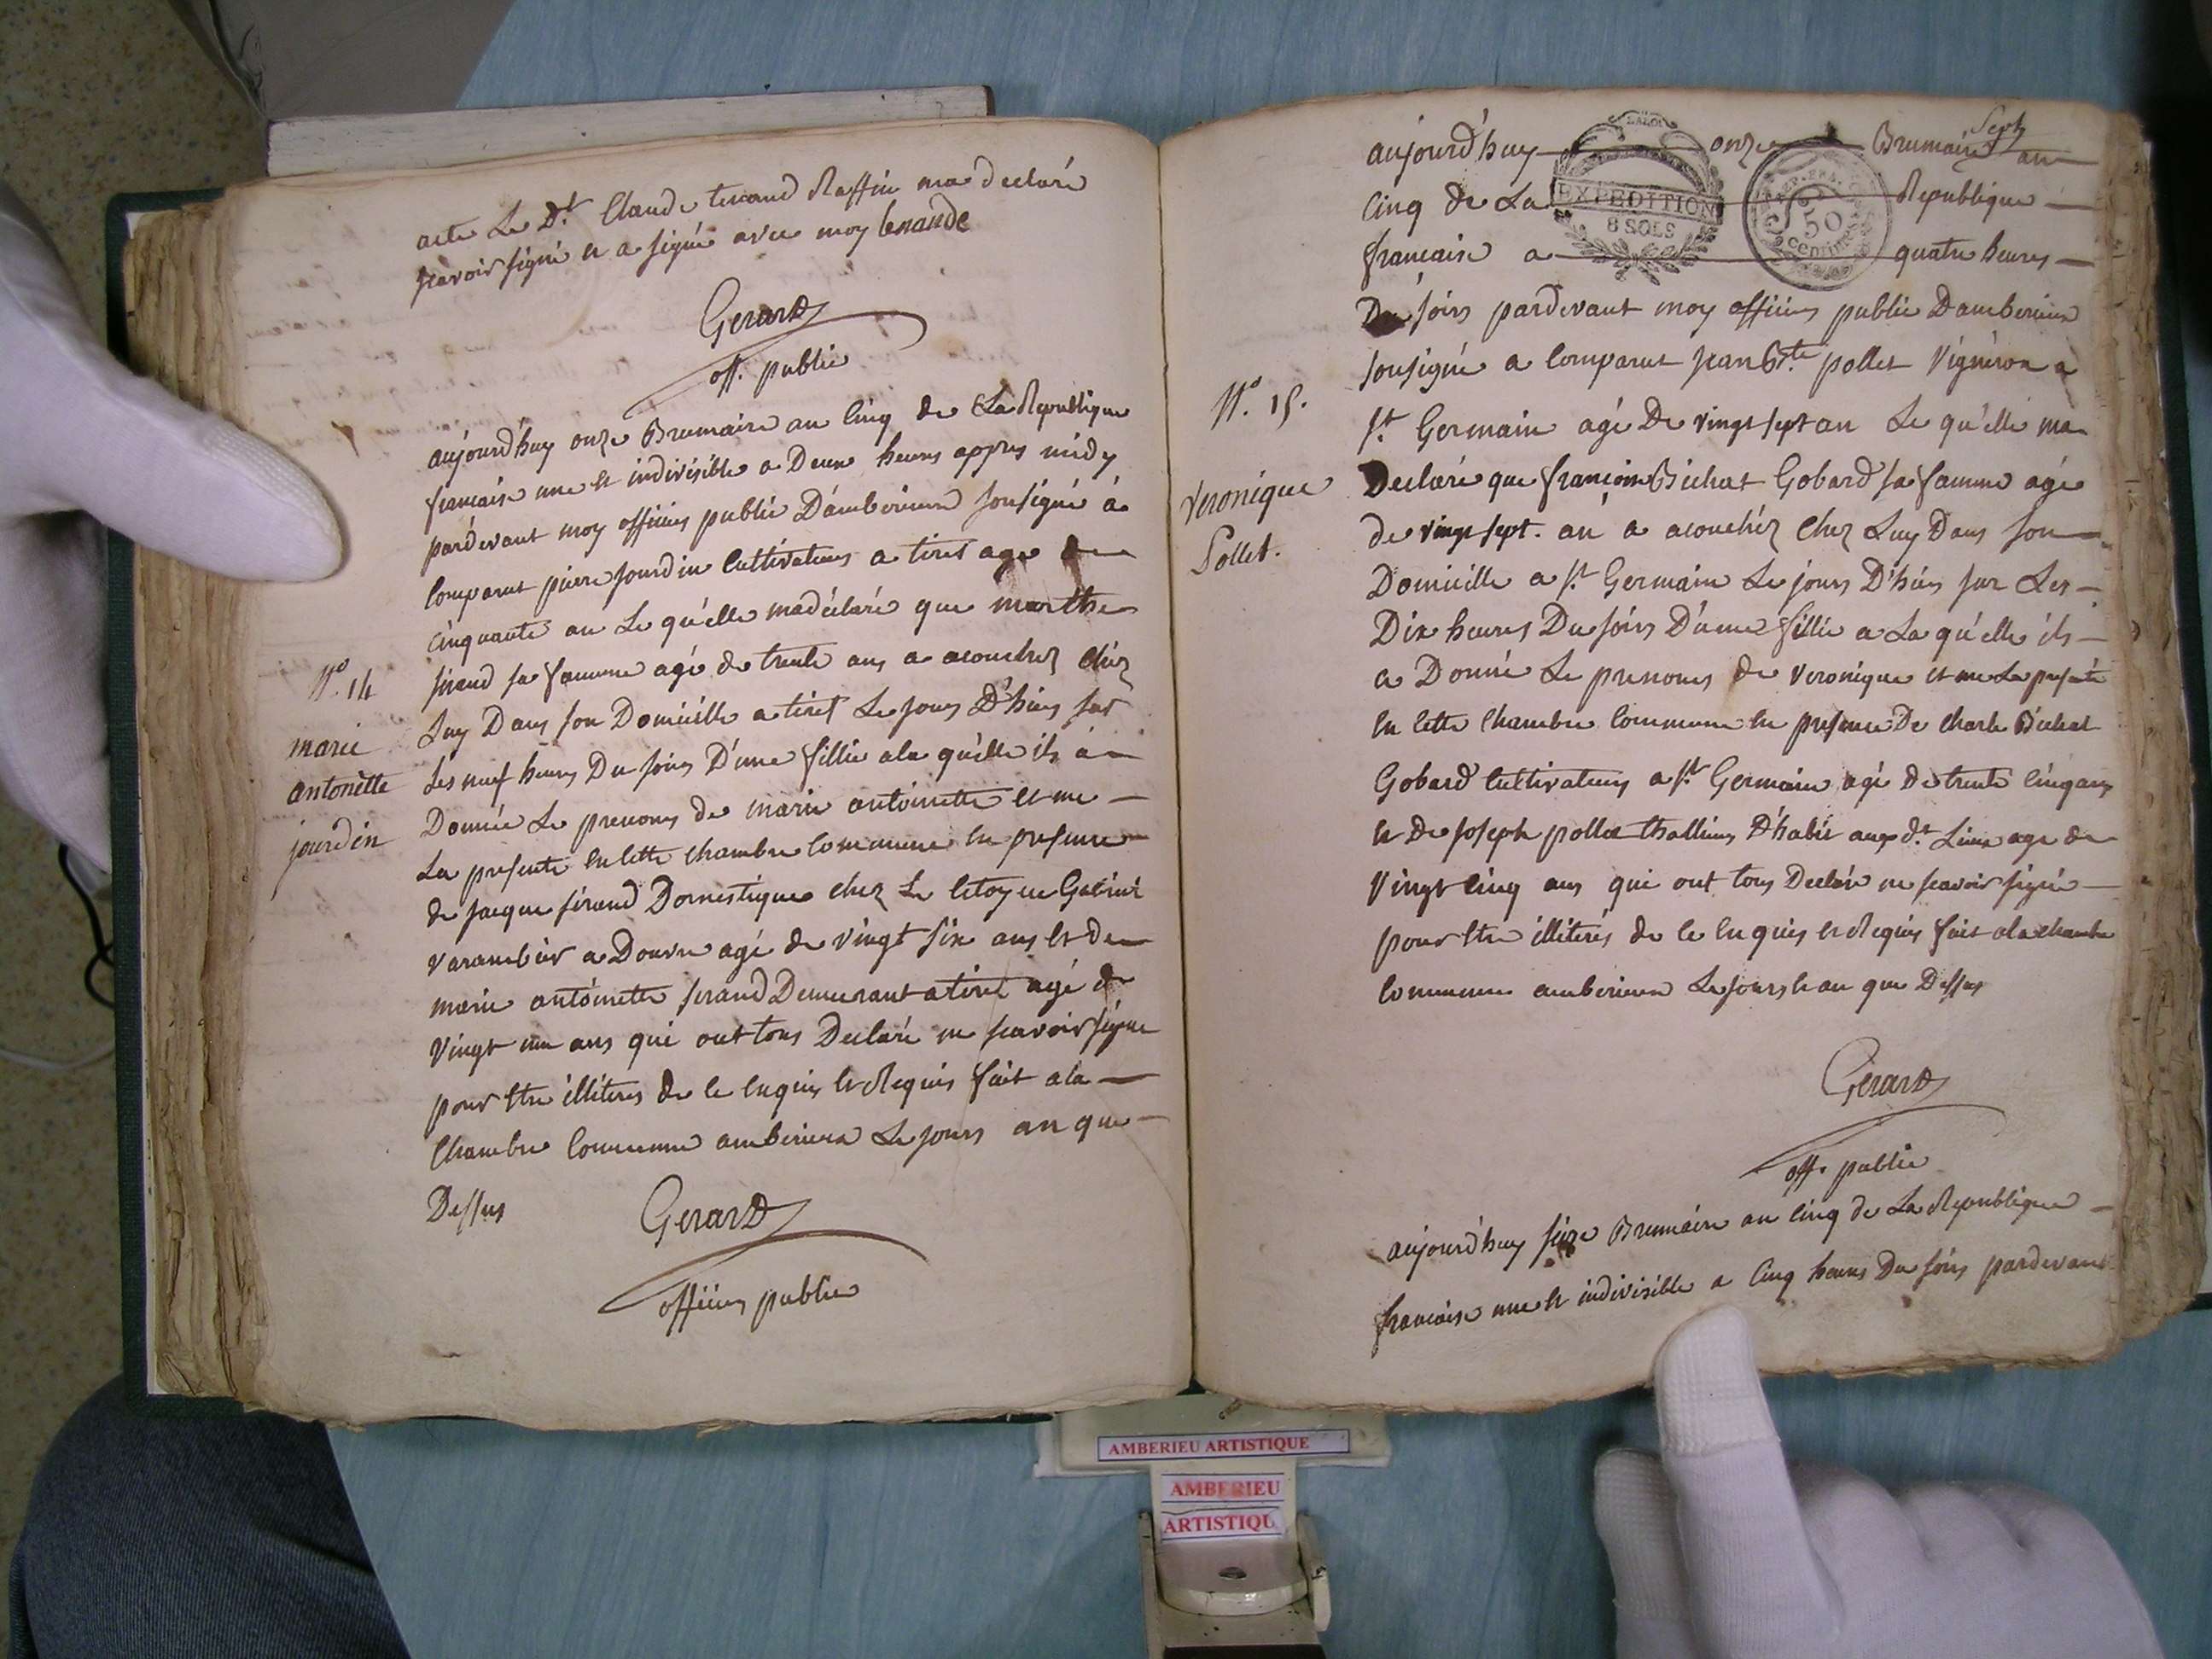 acte Le D.t Claude tenand Raffin ma declaré
scavoir signé et a signé avec moy tenande
Gerard
off. public
aujourd'huy onze Brumaire an Cinq de La Republique
francaise une et indivisible a Deux heures appres midy
pardevant moy officiers public D'amberieux sousigné à
Comparut pierre jourdin Cultivateurs a tiret age de
cinquante an Le qu'elle ma déclaré que marthe
sirand sa famme agé de trente ans a acouchez chez
N.o 14
Luy Dans son Domicille a tiret Le jours D'hiers sur
marie
antoinette
jourdin
Les neuf heures Du soirs D'une fillie a la qu'elle ils à
Donnée Le prenoms de marie antoinette et me
La presenté en Cette Chambre Commune en presence
de jacque sirand Domestique chez Le Citoyen
varambier a Douvre agé de vingt six ans et de
marie antoinette sirand Demeurant a tiret agé de
vingt un ans qui ont tous Declaré ne scavoir signe
pour Etre illiteres de Ce Enquis Et Requis fait a la
Chambre Commune amberieux Le jours an que
Dessus
Gerard
officiers public
aujourd'huy onze Brumaire Sept an
EXPEDITION
8 SOLS
50
Centimes
Cinq de La Republique
francaise a quatre heures
Du soirs pardevant moy officiers public Damberieux
sousigné a Comparut jean B.te pollet Vigneron a
N.o 15.
s.t Germain agé De vingt sept an Le qu'elle ma
Veronique
Pollet.
Declaré que francoise Bichat Gobard sa famme agé
de vingt sept. an a acouchéz Chez Luy Dans son
Domicille a s.t Germain Le jours D'hiers sur Les
Dix heures Du soirs D'une fillie a La qu'elle ils
a Donné Le prenoms de veronique et me La presenté
En Cette Chambre Commune En presence De charle Bichat
Gobard Cultivateurs a s.t Germain agé de trente Cinq ans
Et De joseph pollet thalliers D'habit aux d.t Lieux age de
Vingt Cinq ans qui ont tous Declaré ne scavoir signé
pour Etre illiterés de Ce Enquis Et Requis fait a la chambre
Commune amberieux Le jours Et an que Dessus
Gerard
off. public
aujourd'huy seize Brumaire an Cinq de La Republique
francaise une Et indivisible a Cinq heures Du soirs pardevant
AMBERIEU ARTISTIQUE
AMBERIEU
ARTISTIQU